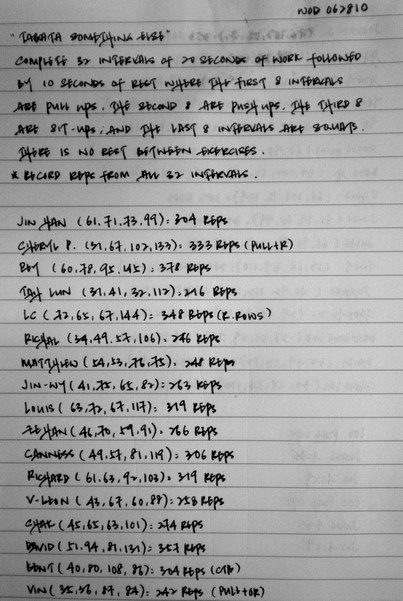 WOD 062810
"TABATA SOMETHING ELSE"
COMPLETE 32 INTERVALS OF 20 SECONDS OF WORK FOLLOWED
BY 10 SECONDS OF REST WHERE THE FIRST 8 INTERVALS
ARE PULL UPS. THE SECOND 8 ARE PUSH UPS. THE THIRD 8
ARE SIT-UPS, AND THE LAST 8 INTERVALS ARE SQUATS.
THERE IS NO REST BETWEEN EXERCISES.
* RECORD REPS FROM ALL 32 INTERVALS.
JIN HAN (61,71,73,99): 304 REPS
CHERYL P. (31,67,102,133): 333 REPS (PULL+R)
BEY (60,78,95,145): 378 REPS
TAH LUN (31,41,32,112): 216 REPS
LC (72,65,67,144): 348 REPS (R.ROWS)
(34,49,57,106): 246 REPS
MATTHEW (54,53,76,75): 248 REPS
JIN-WY (41,75,65,82): 263 REPS
LOUIS (63,72,67,117): 319 REPS
ZEHAN (46,70,59,91): 266 REPS
CANNESS (49,57,81,119): 306 REPS
RICHARD (61,63,92,103): 319 REPS
V-LEON (43,67,60,88): 258 REPS
(45,65,63,101): 274 REPS
DAVID (51,94,81,131): 357 REPS
(40,80,108,86): 304 REPS (CTB)
VIN (35,36,87,84): 242 REPS (PULL+OR)